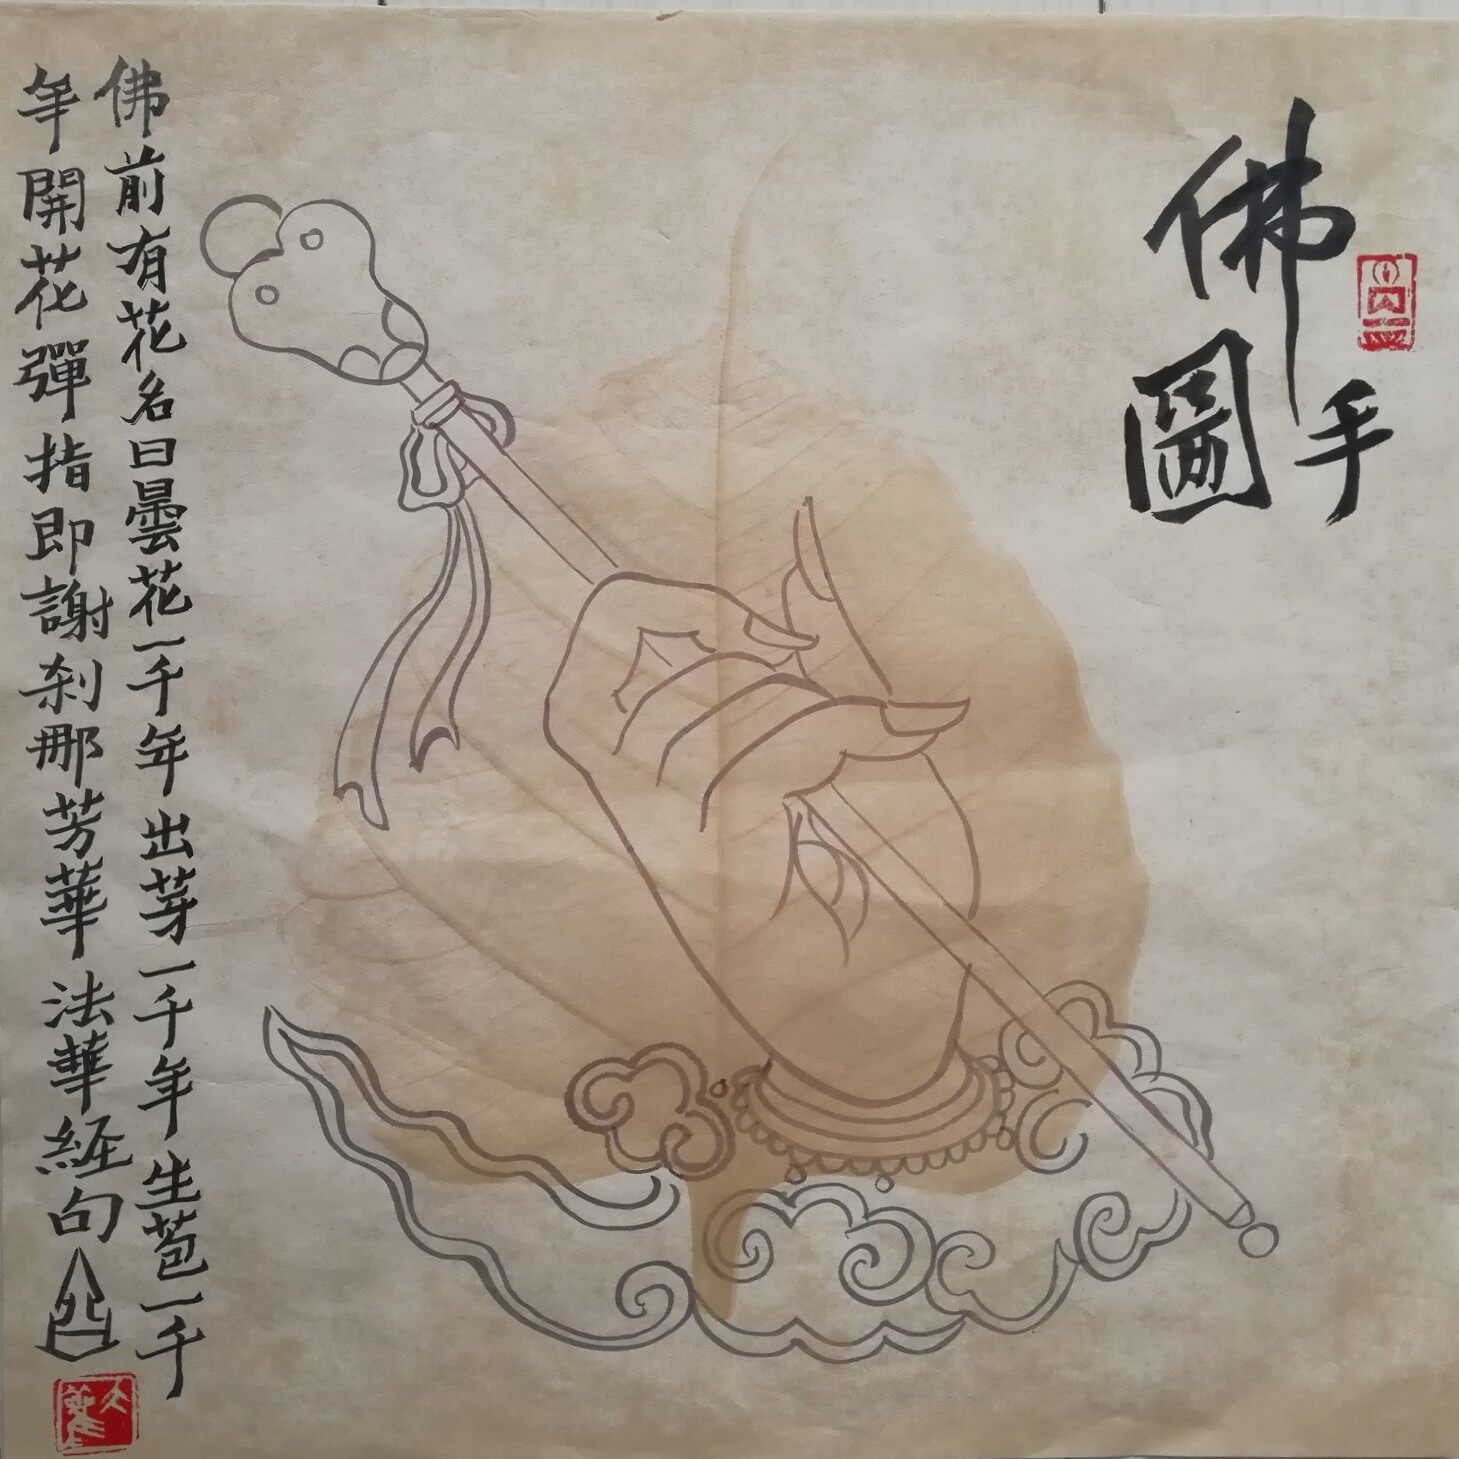 佛手圖
佛前有花名曰曇花一千年出芽一千年生苞一千
年開花彈指即謝刹那芳華法華經句